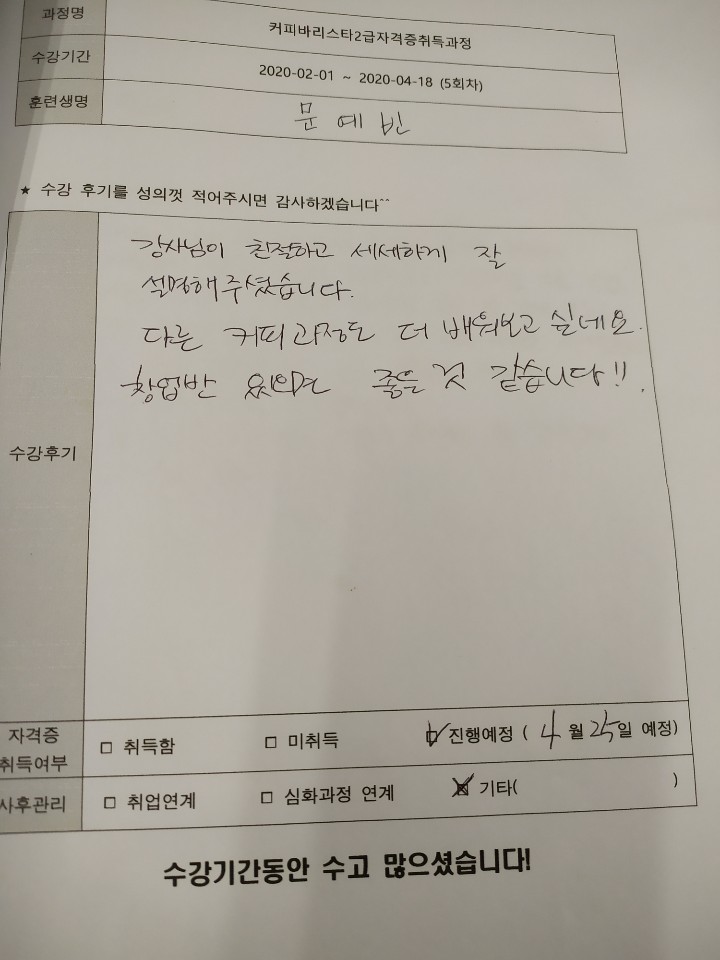 과정명 커피바리스타2급자격증취득과정
수강기간 2020-02-01 ~ 2020-04-18 (5회차)
훈련생명 문예빈
★ 수강 후기를 성의껏 적어주시면 감사하겠습니다^^
강사님이 친절하고 세세하게 잘
설명해주셨습니다.
다른 커피과정도 더 배워보고 싶네요.
수강후기
창업반 있으면 좋을것 같습니다!!.
자격증 취득여부 □ 취득함 □ 미취득 ☑ 진행예정 ( 4월 25일 예정)
사후관리 □ 취업연계 □ 심화과정 연계 ☒ 기타( )
수강기간동안 수고 많으셨습니다!